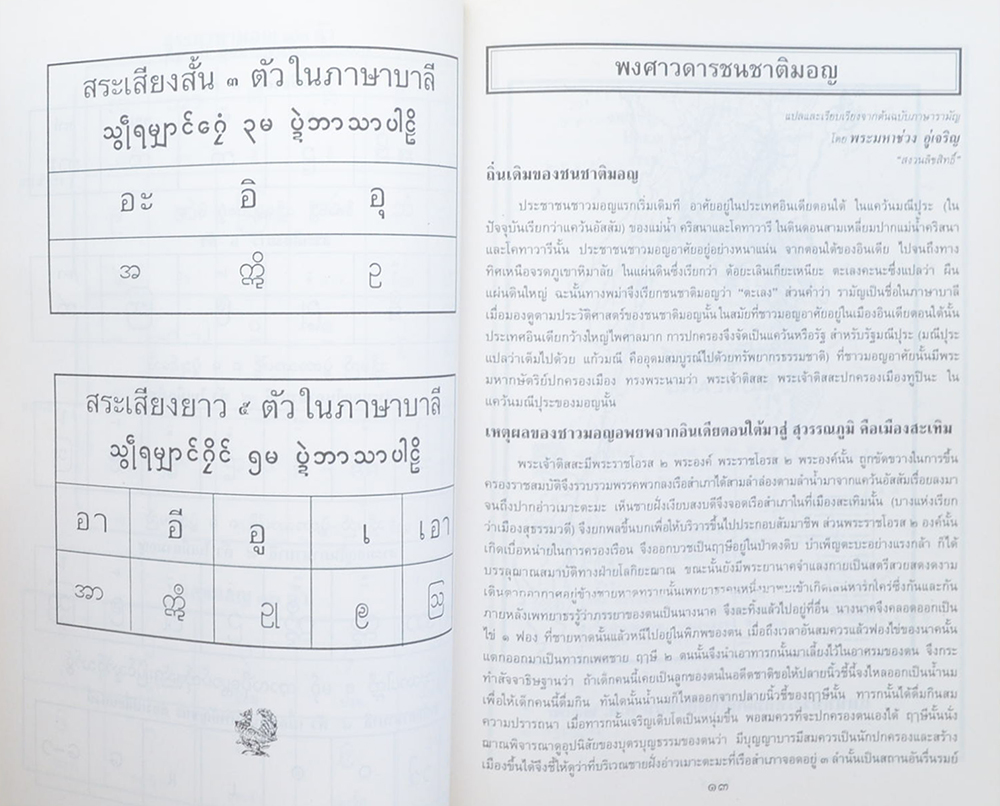 สระเสียงสั้น ๓ ตัว ในภาษาบาลี
အ ဣ ဥ
อะ อิ อุ
สระเสียงยาว ๕ ตัว ในภาษาบาลี
อา อี อู เ เอา
พงศาวดารชนชาติมอญ
แปลและเรียบเรียงจากต้นฉบับภาษารามัญ
โดย พระมหาช่วง อู่เจริญ
"สงวนลิขสิทธิ์"
ถิ่นเดิมของชนชาติมอญ
ประชาชนชาวมอญแรกเริ่มเดิมที อาศัยอยู่ในประเทศอินเดียตอนใต้ ในแคว้นมณีปุระ (ใน
ปัจจุบันเรียกว่าแคว้นอัสสัม) ของแม่น้ำ คริสนาและโคทาวารี ในดินดอนสามเหลี่ยมปากแม่น้ำคริสนา
และโคทาวารีนั้น ประชาชนชาวมอญอาศัยอยู่อย่างหนาแน่น จากตอนใต้ของอินเดีย ไปจนถึงทาง
ทิศเหนือจรดภูเขาหิมาลัย ในแผ่นดินซึ่งเรียกว่า ต้อยะเลินเกียะเหนียะ ตะเลงคะนะซึ่งแปลว่า ผืน
แผ่นดินใหญ่ ฉะนั้นทางพม่าจึงเรียกชนชาติมอญว่า "ตะเลง" ส่วนคำว่า รามัญเป็นชื่อในภาษาบาลี
เมื่อมองดูตามประวัติศาสตร์ของชนชาติมอญนั้น ในสมัยที่ชาวมอญอาศัยอยู่ในเมืองอินเดียตอนใต้นั้น
ประเทศอินเดียกว้างใหญ่ไพศาลมาก การปกครองจึงจัดเป็นแคว้นหรือรัฐ สำหรับรัฐมณีปุระ (มณีปุระ
แปลว่าเต็มไปด้วย แก้วมณี คืออุดมสมบูรณ์ไปด้วยทรัพยากรธรรมชาติ) ที่ชาวมอญอาศัยนั้นมีพระ
มหากษัตริย์ปกครองเมือง ทรงพระนามว่า พระเจ้าติสสะ พระเจ้าติสสะปกครองเมืองทูปินะ ใน
แคว้นมณีปุระของมอญนั้น
เหตุผลของชาวมอญอพยพจากอินเดียตอนใต้มาสู่ สุวรรณภูมิ คือเมืองสะเทิม
พระเจ้าติสสะมีพระราชโอรส ๒ พระองค์ พระราชโอรส ๒ พระองค์นั้น ถูกขัดขวางในการขึ้น
ครองราชสมบัติจึงรวบรวมพรรคพวกลงเรือสำเภาได้สามลำล่องตามลำน้ำมาจากแคว้นอัสสัมเรื่อยลงมา
จนถึงปากอ่าวเมาะตะมะ เห็นชายฝั่งเงียบสงบดีจึงจอดเรือสำเภาในที่เมืองสะเทิมนั้น (บางแห่งเรียก
ว่าเมืองสุธรรมวดี) จึงยกพลขึ้นบกเพื่อให้บริวารขึ้นไปประกอบสัมมาชีพ ส่วนพระราชโอรส ๒ องค์นั้น
เกิดเบื่อหน่ายในการครองเรือน จึงออกบวชเป็นฤๅษีอยู่ในป่าดงดิบ บำเพ็ญตะบะอย่างแรงกล้า ก็ได้
บรรลุฌาณสมาบัติทางฝ่ายโลกิยะฌาณ ขณะนั้นยังมีพระยานาคจำแลงกายเป็นสตรีสวยสดงดงาม
ภายหลังเพทยาธรรู้ว่าภรรยาของตนเป็นนางนาค จึงละทิ้งแล้วไปอยู่ที่อื่น นางนาคจึงคลอดออกเป็น
ไข่ ๑ ฟอง ที่ชายหาดนั้นแล้วหนีไปอยู่ในพิภพของตน เมื่อถึงเวลาอันสมควรแล้วฟองไข่ของนาคนั้น
แตกออกมาเป็นทารกเพศชาย ฤๅษี ๒ ตนนั้นจึงนำเอาทารกนั้นมาเลี้ยงไว้ในอาศรมของตน จึงกระ
ทำสัจจาธิษฐานว่า ถ้าเด็กคนนี้เคยเป็นลูกของตนในอดีตชาติขอให้ปลายนิ้วชี้นี้จงไหลออกเป็นน้ำนม
เพื่อให้เด็กคนนี้ดื่มกิน ทันใดนั้นน้ำนมก็ไหลออกจากปลายนิ้วชี้ของฤๅษีนั้น ทารกนั้นได้ดื่มกินสม
ความปรารถนา เมื่อทารกนั้นเจริญเติบโตเป็นหนุ่มขึ้น พอสมควรที่จะปกครองตนเองได้ ฤๅษีนั้นนั่ง
ฌาณพิจารณาดูอุปนิสัยของบุตรบุญธรรมของตนว่า มีบุญญาบารมีสมควรเป็นนักปกครองและสร้าง
เมืองขึ้นได้จึงชี้ให้ดูว่าที่บริเวณชายฝั่งอ่าวเมาะตะมะที่เรือสำเภาจอดอยู่ ๓ ลำนั้นเป็นสถานอันรื่นรมย์
๑๓